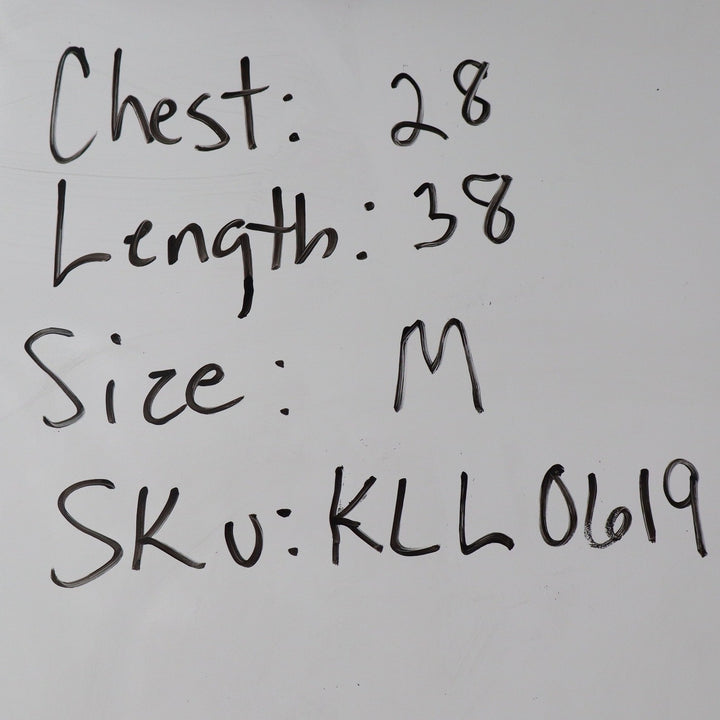 Chest: 28
Length: 38
Size: M
SKU: KLL0619